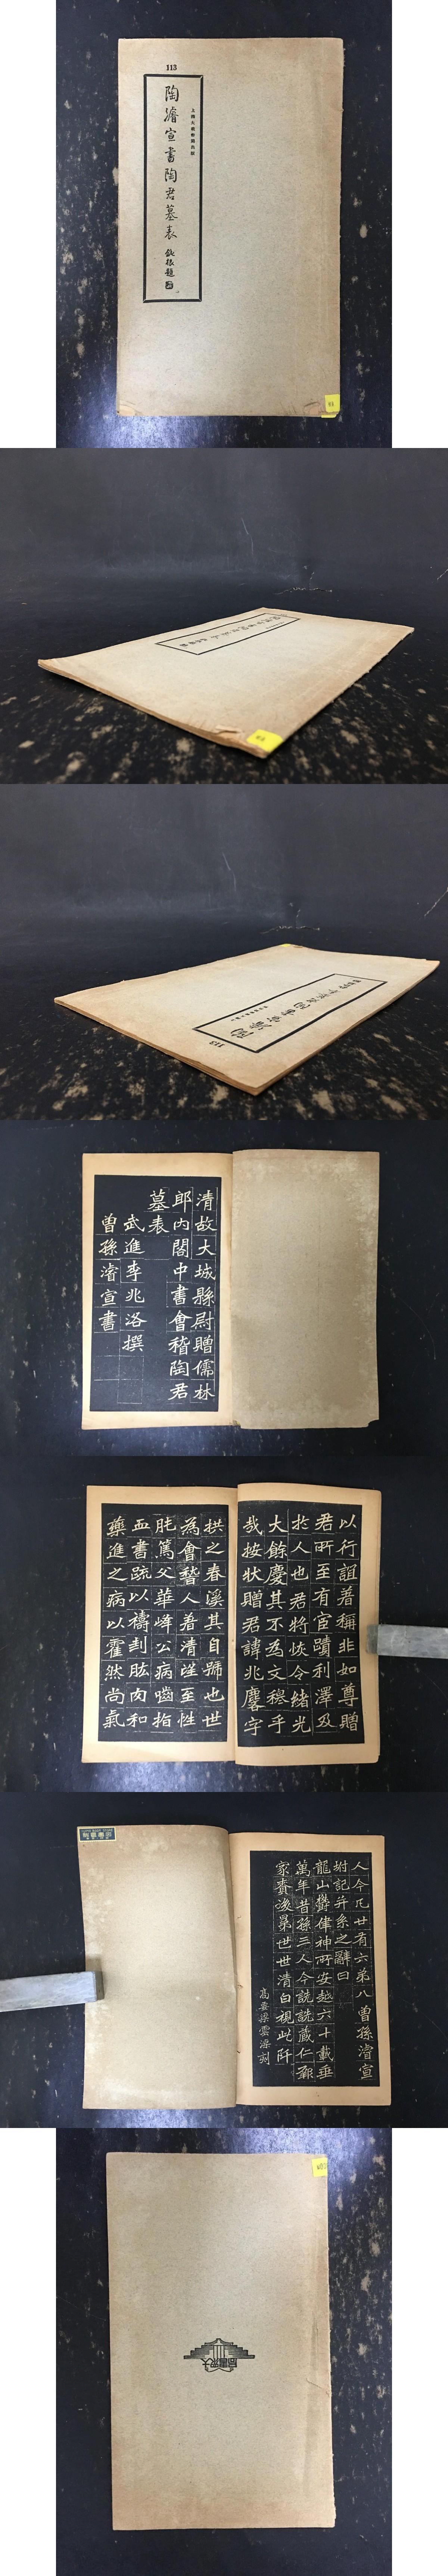 113
上海大眾書局出版
陶濬宣書陶君墓表
清故大城縣尉贈儒林
郎內閣中書會稽陶君
墓表
武進李兆洛撰
曾孫濬宣書
以行誼著稱非如尊贈
君所至有宦蹟利澤及
於人也君將恢令緒光
大餘慶其不為文穆乎
哉按狀贈君諱兆麐字
拱之春溪其自號也世
為會稽人着清望至性
肫篤父華峰公病嚙指
血書疏以禱刲肱肉和
藥進之病以霍然尚氣
人今凡廿有六弟八曾孫濬宣
坿記并系之辭曰
龍山鬱律神所安越六十載垂
萬年昔孫三人今詵詵藏仁
家賚後昆世世清白視此阡
高要梁雲渠刻
大眾書局